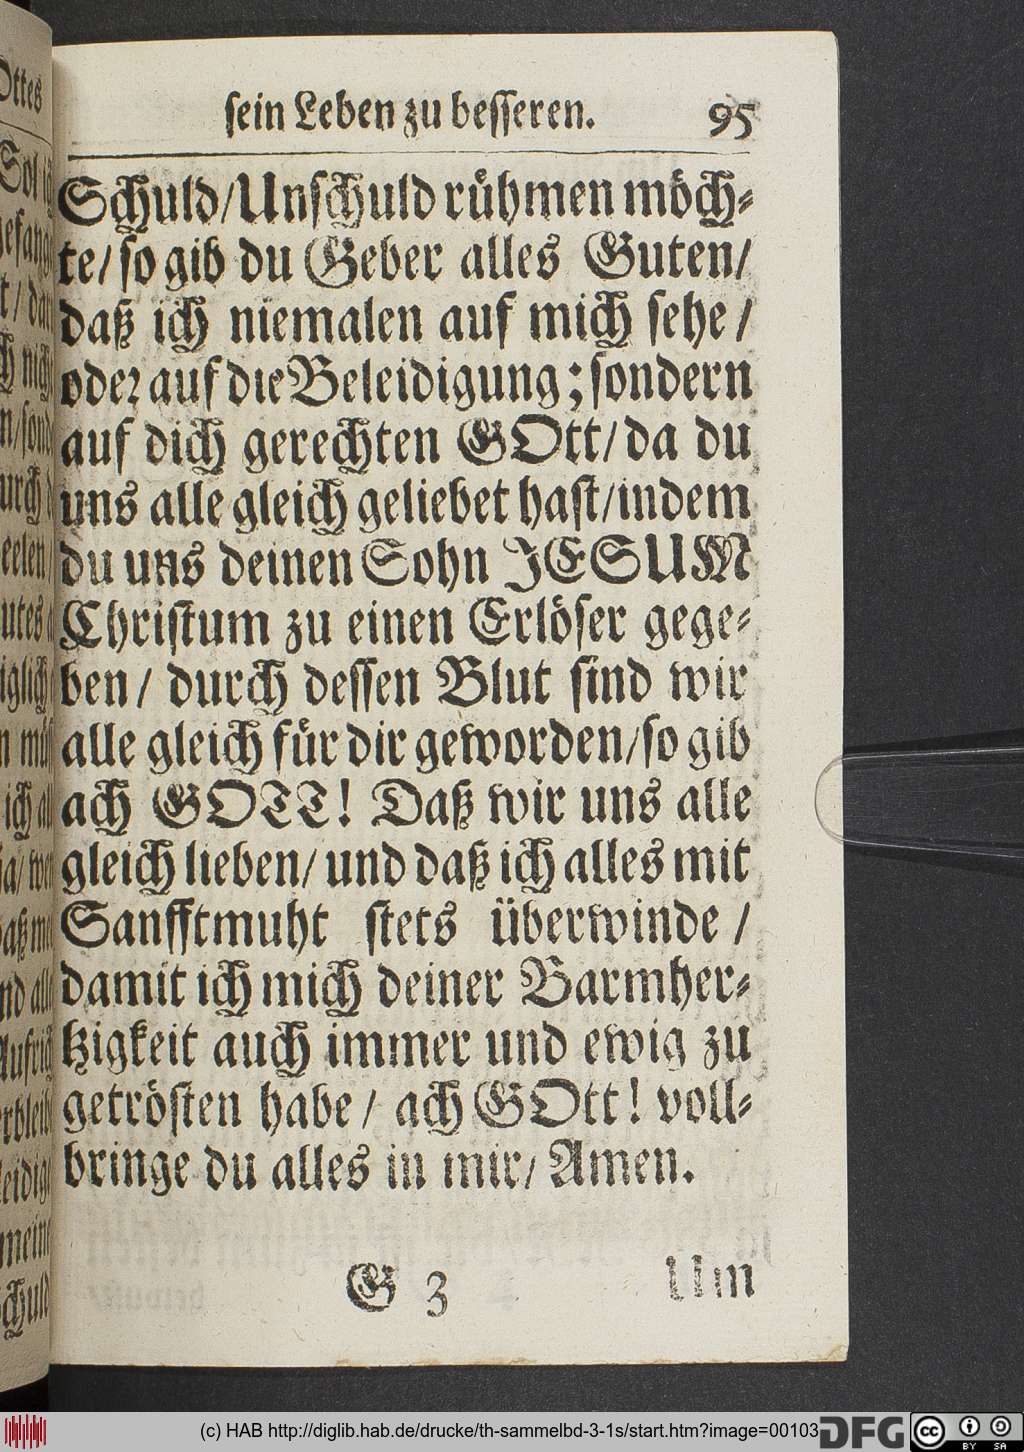 sein Leben zu besseren. 95
Schuld/Unschuld rühmen möch-
te/ so gib du Geber alles Guten/
daß ich niemalen auf mich sehe/
oder auf die Beleidigung; sondern
auf dich gerechten GOtt/ da du
uns alle gleich geliebet hast/indem
du uns deinen Sohn JESUM
Christum zu einen Erlöser gege-
ben/ durch dessen Blut sind wir
alle gleich für dir geworden/so gib
ach GOTT! Daß wir uns alle
gleich lieben/ und daß ich alles mit
Sanfftmuht stets überwinde/
damit ich mich deiner Barmher-
tzigkeit auch immer und ewig zu
getrösten habe/ ach GOtt! voll-
bringe du alles in mir/ Amen.
G 3 Um
(c) HAB http://diglib.hab.de/drucke/th-sammelbd-3-1s/start.htm?image=00103
DFG
cc BY SA